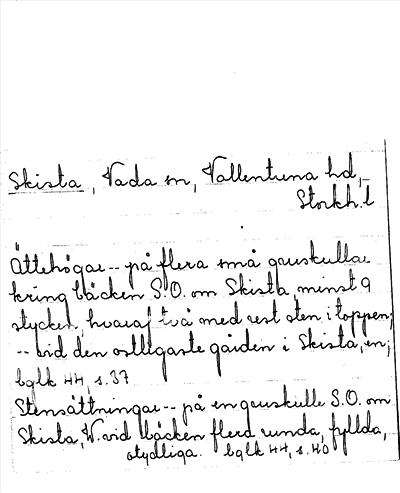 Skista, Vada sn, Vallentuna hd,
Stockh. l
Ättehögar -- på flera små gruskullar
kring bäcken S.O. om Skista, minst 9
stycken, hvaraf två med rest sten i toppen;
-- vid den ostligaste gården i Skista, en;
bglk 44, s. 37
Stensättningar -- på en gruskulle S.O. om
Skista, V. vid bäcken flera runda, fyllda,
otydliga. bglk 44, s. 40